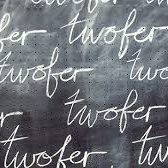 fer twofer
twofer twof
er twofer
twofer two